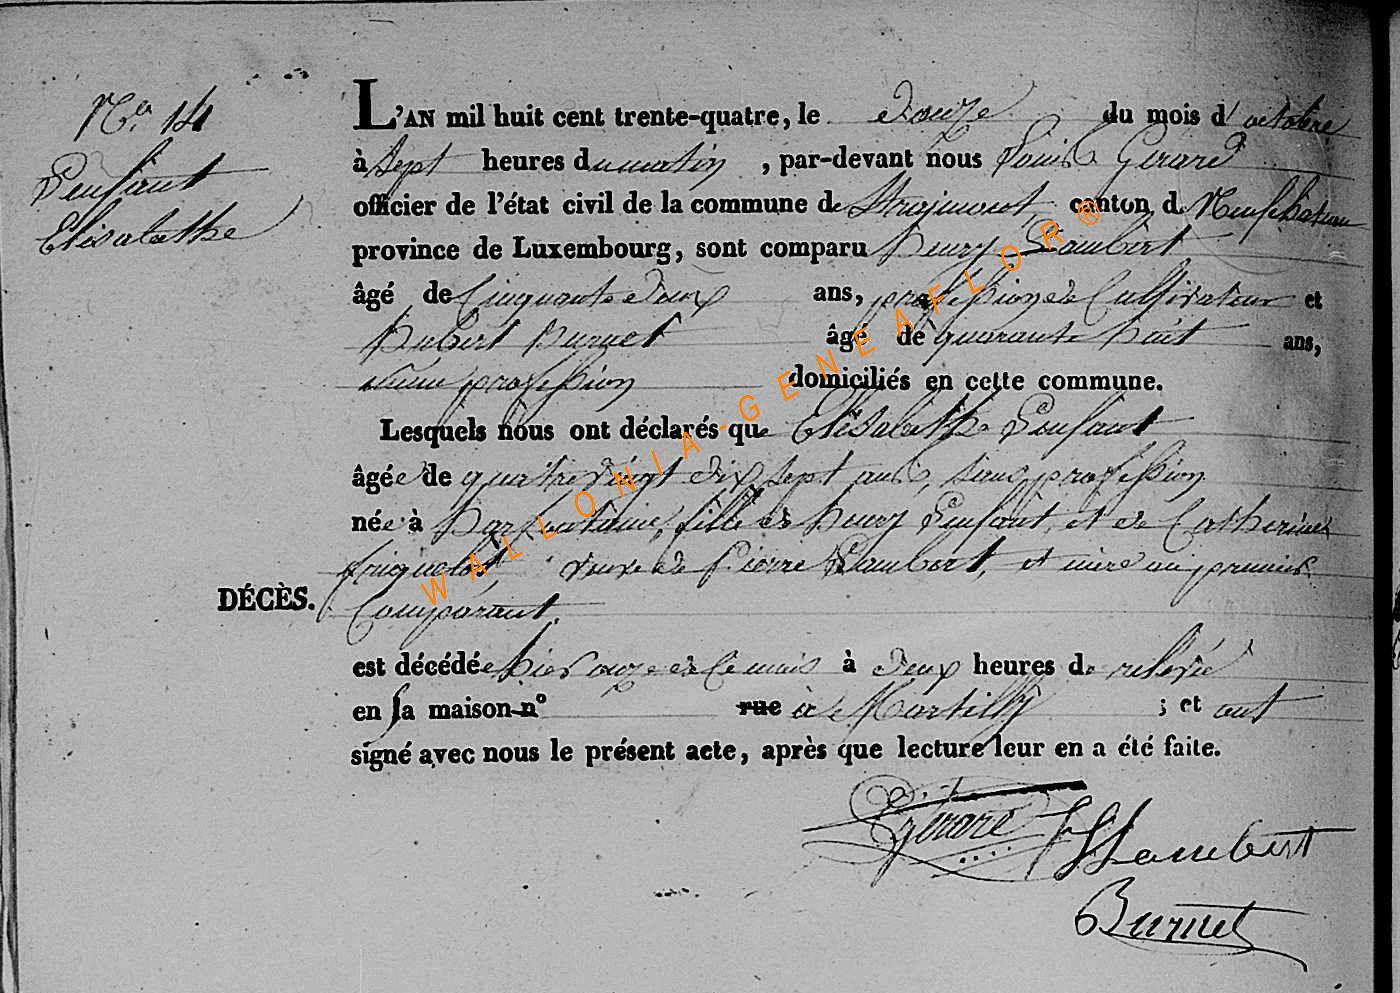 N.o 14
Lenfant
Elisabethe
L'AN mil huit cent trente-quatre, le douze du mois d'octobre
à sept heures du matin, par-devant nous Louis Gerard
officier de l'état civil de la commune de Straimont, canton de Neufchateau
province de Luxembourg, sont comparu henry Lambert
âgé de Cinquante deux ans, profession de Cultivateur et
hubert Burnet âgé de quarante huit ans,
même profession domiciliés en cette commune.
Lesquels nous ont déclarés que Elisabethe Lenfant
âgée de quatre vingt dix sept ans, sans profession
née à harfontaine, fille de henry Lenfant, et de Catherine
veuve de Pierre Lambert, et mère au premier
DÉCÈS. Comparant.
est décédée hier onze de ce mois à deux heures de relevée
en sa maison n° rue à Martilly ; et ont
signé avec nous le présent acte, après que lecture leur en a été faite.
LGerard HLambert
Burnet
WALLONIA-GENEAFLOR®